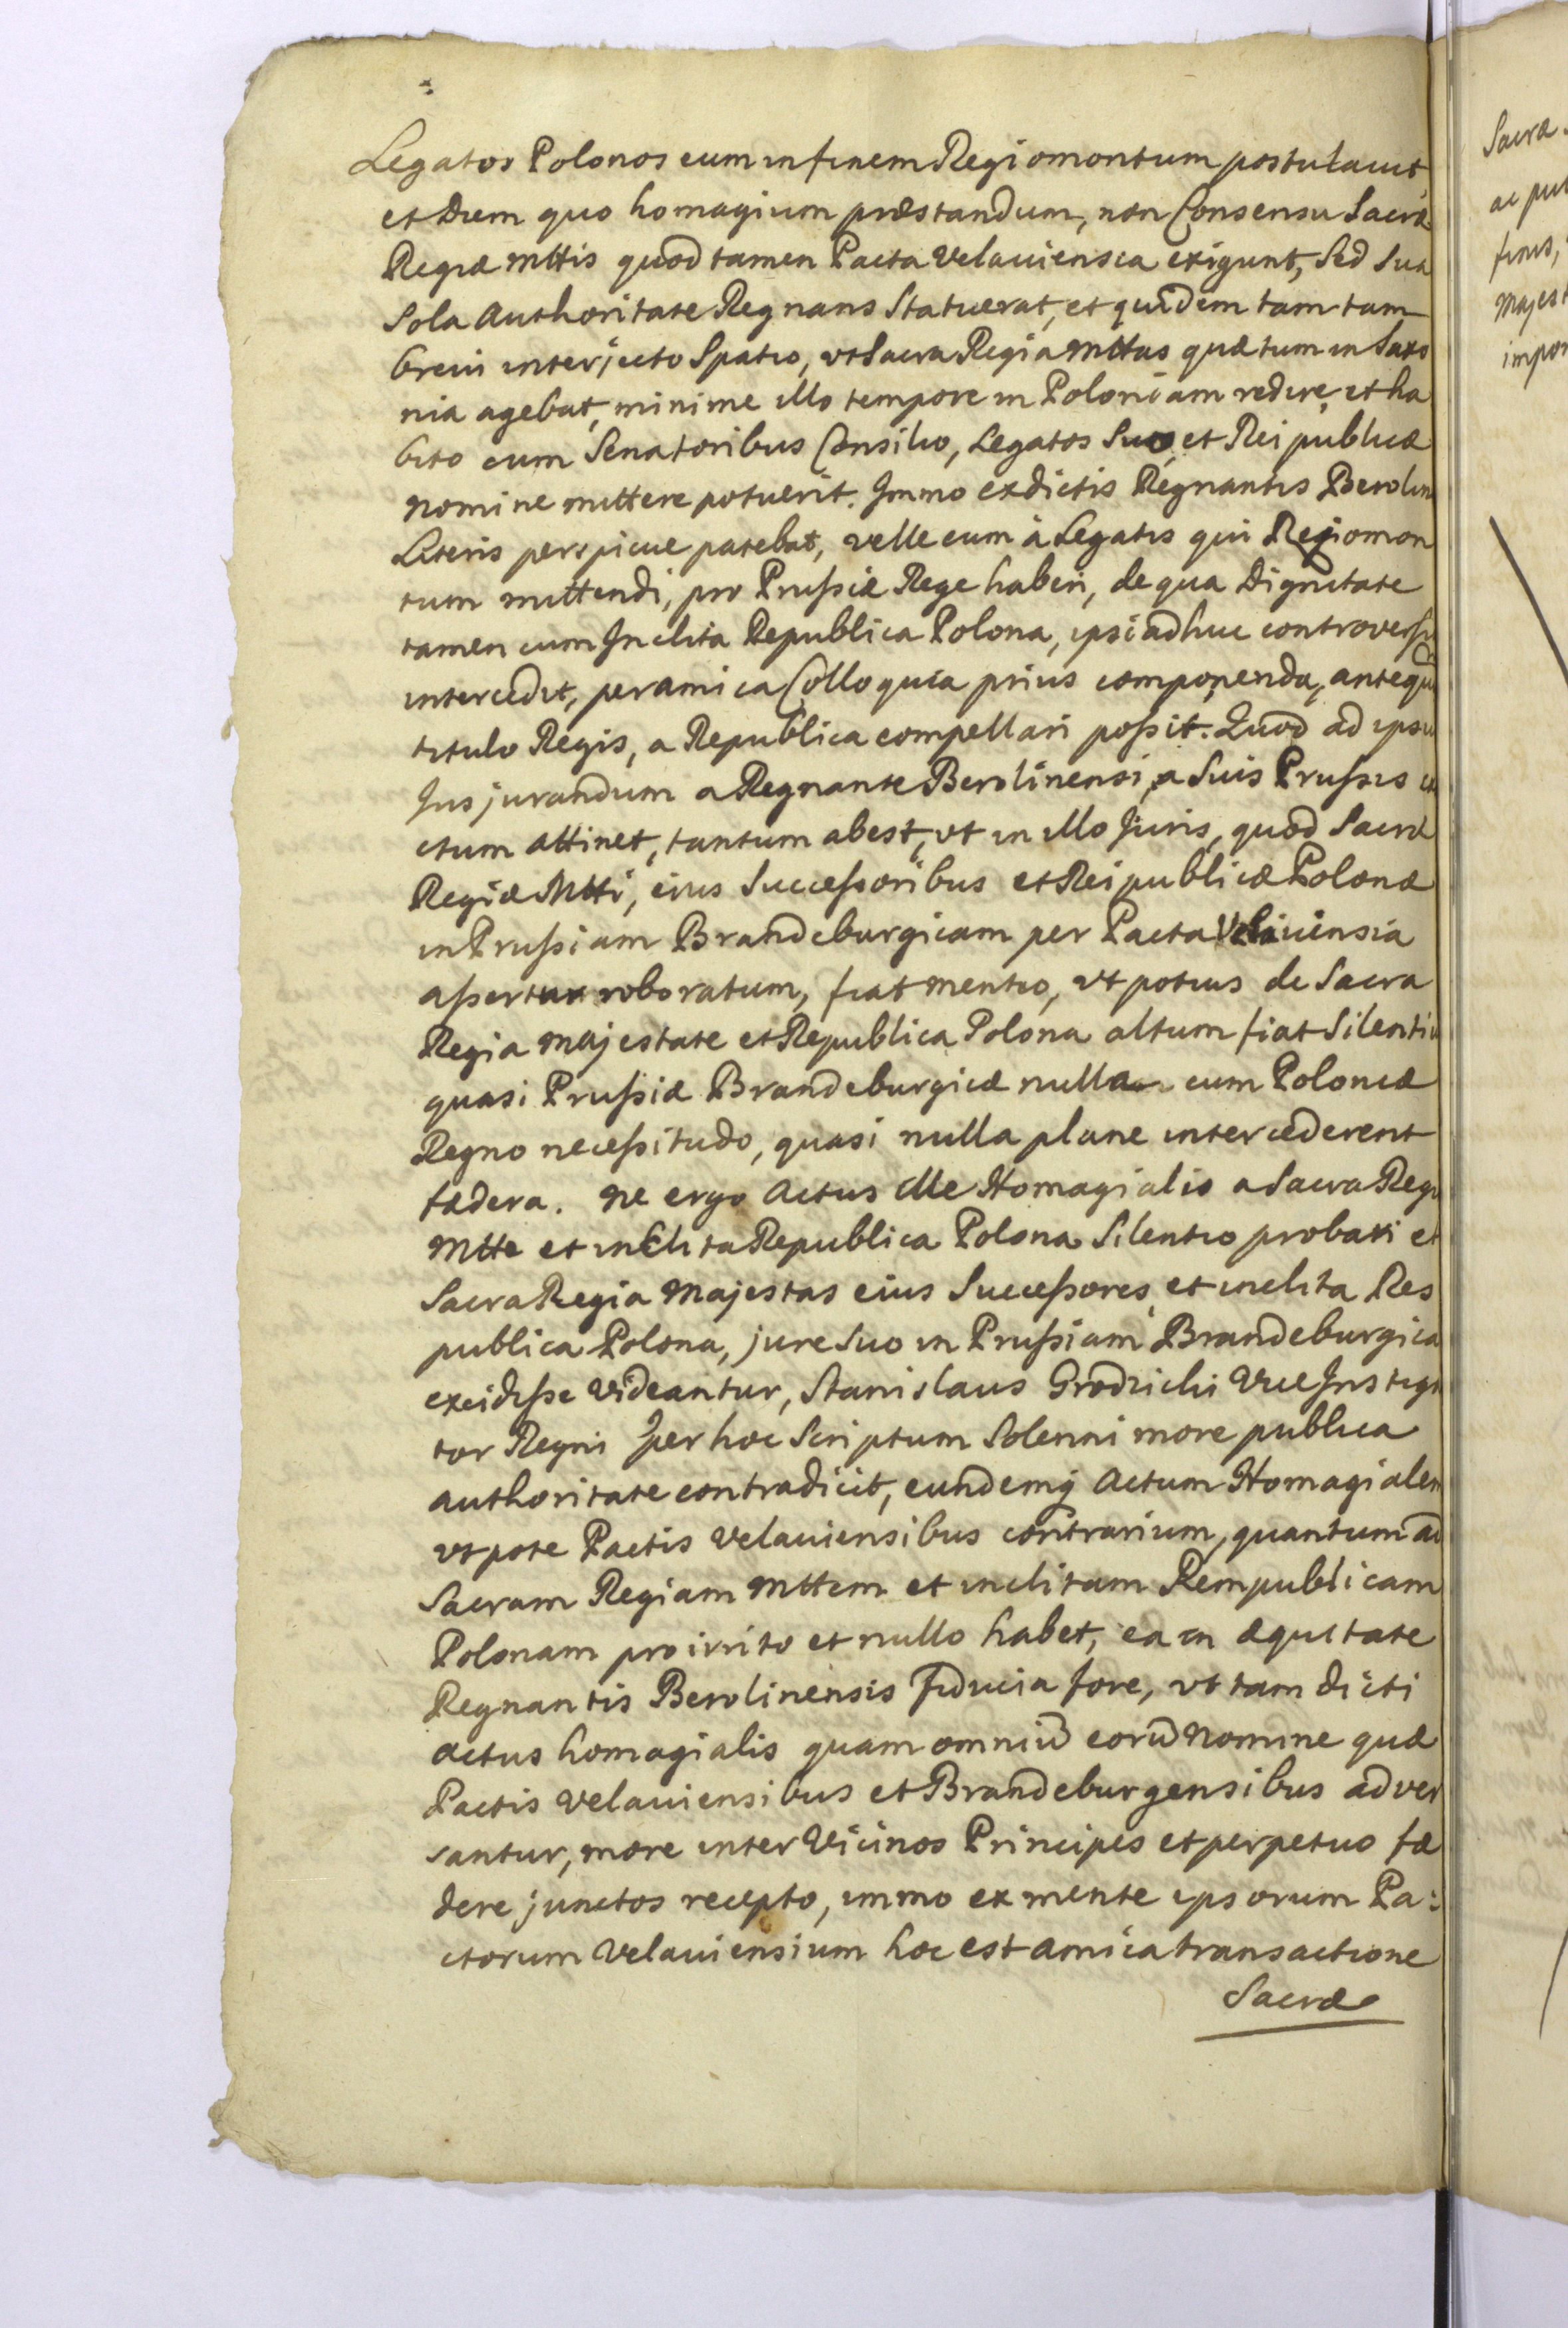 Legatos Polonos eum in finem Regiomontum postulauit,
et Diem quo homagium præstandum, non Consensu Sacræ
Regiæ Mttis quod tamen Pacta Velauiensia exigunt, Sed Sua
Sola Authoritate Regnans Statuerat, et quidem tam tam
breui interjecto Spatio, vt Sacra Regia Mttas quæ tum in Saxo
nia agebat, minime illo tempore in Poloniam redire, et ha
bito cum Senatoribus Consilio, Legatos Suo, et Reipublicæ
nomine mittere potuerit. Immo ex dictis Regnantis Berolin
Literis perspicue patebat, velle eum à Legatis qui Regiomon
tum mittendi, pro Prussiæ Rege haberi, de qua Dignitate
tamen cum Inclita Republica Polona, ipsi adhuc controversi
intercedit, per amica Colloquia prius componenda, antequ
titulo Regis, a Republica compellari possit. Quod ad ipsu
Jus jurandum a Regnante Berolinensi, a Suis Prussis ex
ctum attinet, tantum abest, vt in illo Juris, quod Sacræ
Regiæ Mtti, eius Successoribus et Reipublicæ Polonæ
in Prussiam Brandeburgicam per Pacta Velauiensia
assertum roboratum, fiat mentio, vt potius de Sacra
Regia Majestate et Republica Polona altum fiat Silentiu
quasi Prussiæ Brandeburgicæ nulla cum Poloniæ
Regno necessitudo, quasi nulla plane intercederent
fædera. Ne ergo Actus ille Homagialis a Sacra Regi
Mtte et inclita Republica Polona Silentio probari et
Sacra Regia Majestas eius Successores, et inclita Res
publica Polona, jure Suo in Prussiam Brandeburgica
excidisse Videantur, Stanislaus Grodzicki Vice Instiga
tor Regni per hoc Scriptum Solenni more publica
authoritate contradicit, eundemq Actum Homagialem
vtpote Pactis Velauiensibus contrarium, quantum ad
Sacram Regiam Mttem et inclitam Rempublicam
Polonam pro irrito et nullo habet, ea in æquitate
Regnantis Berolinensis fiducia fore, vt tam dicti
actus homagialis quam omniu eoru Nomine quæ
Pactis Velauiensibus et Brandeburgensibus adver
santur, more inter Vicinos Principes et perpetuo fæ
dere junctos recepto, immo ex mente ipsorum Pa:
ctorum Velauiensium hoc est amica transactione
Sacræ
Sacra
ac pu
finis,
Majest
impor